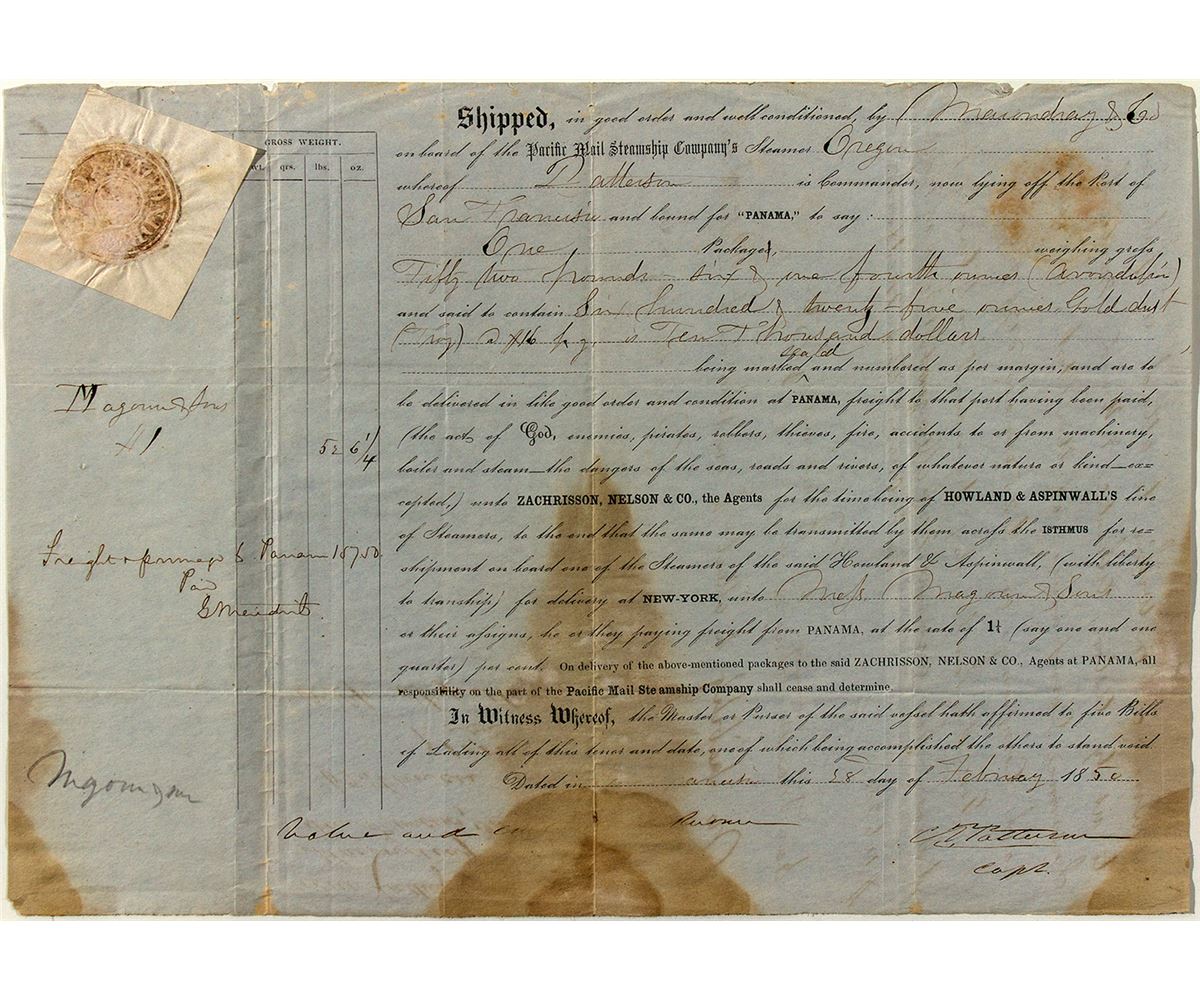 GROSS WEIGHT.
qrs. lbs. oz.
Shipped, in good order and well conditioned, by Macondray & Co
on board of the Pacific Mail Steamship Company's Steamer Oregon
whereof Patterson is Commander, now lying off the Port of
San Francisco and bound for "PANAMA," to say:
One Package, weighing gross
Fifty two pounds six & one fourth ounces (avoirdupois)
and said to contain Six hundred & twenty-five ounces Gold dust
(Troy) @ $16 is Ten Thousand dollars
sealed
being marked and numbered as per margin, and are to
be delivered in like good order and condition at PANAMA, freight to that port having been paid,
(the act of God, enemies, pirates, robbers, thieves, fire, accidents to or from machinery,
boiler and steam—the dangers of the seas, roads and rivers, of whatever nature or kind—ex=
cepted,) unto ZACHRISSON, NELSON & CO., the Agents for the time being of HOWLAND & ASPINWALL'S line
of Steamers, to the end that the same may be transmitted by them across the ISTHMUS for re=
shipment on board one of the Steamers of the said Howland & Aspinwall, (with liberty
to tranship) for delivery at NEW-YORK, unto Mess Magoun & Sons
or their assigns, he or they paying freight from PANAMA, at the rate of 1¼ (say one and one
quarter) per cent. On delivery of the above-mentioned packages to the said ZACHRISSON, NELSON & CO., Agents at PANAMA, all
responsibility on the part of the Pacific Mail Steamship Company shall cease and determine.
In Witness Whereof, the Master or Purser of the said vessel hath affirmed to five Bills
of Lading all of this tenor and date, one of which being accomplished the others to stand void.
Dated in this 28 day of February 1850
Value and
C P Patterson
Capt.
Magoun & Sons
#1.
52 6 1/4
Freight & primage to Panama 187.50
Paid
G Meredith
Magoun & Son